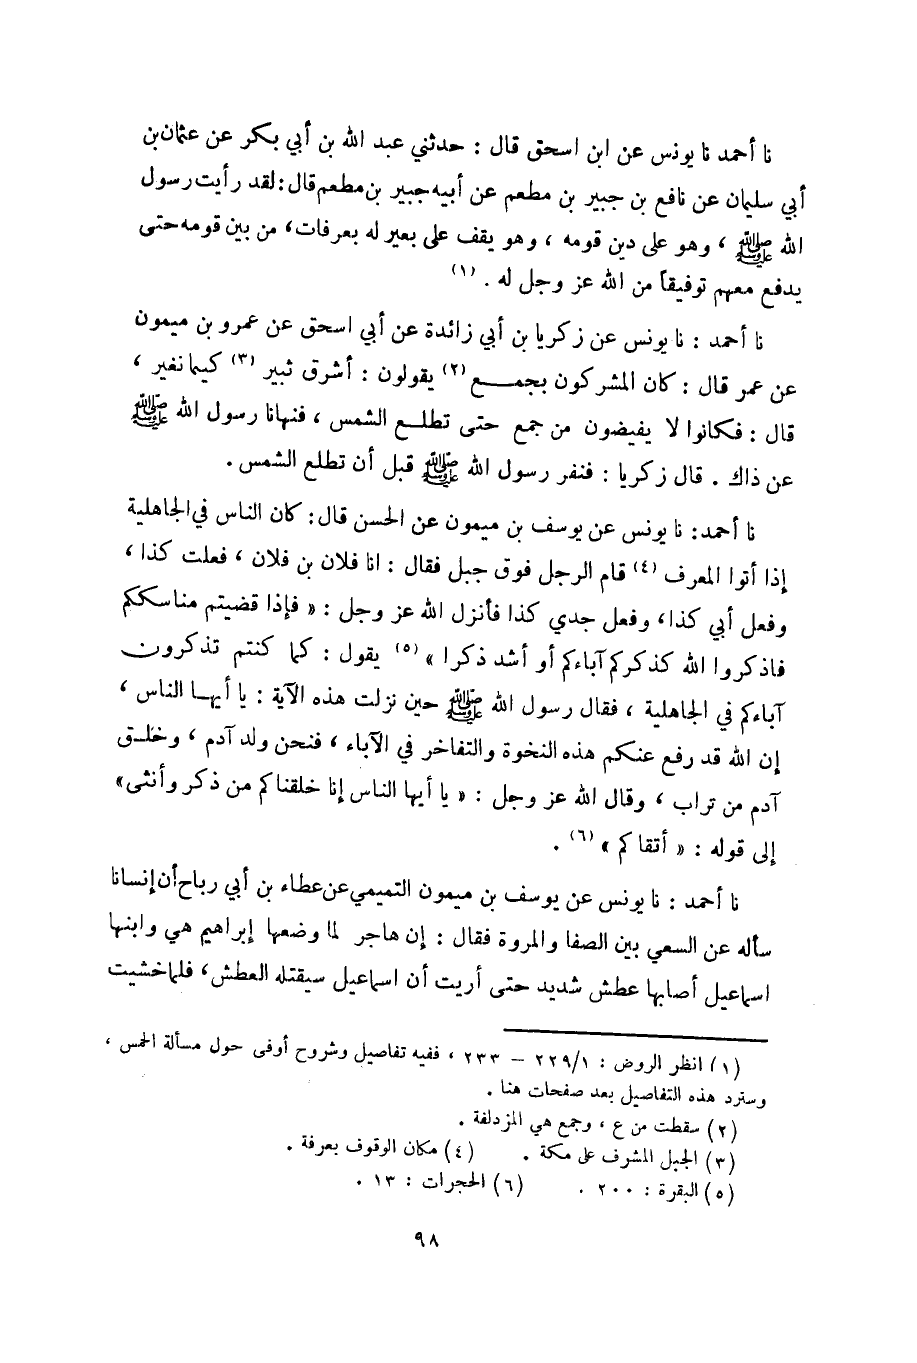 نا أحمد نا يونس عن ابن اسحق قال : حدثني عبد الله بن أبي بكر عن عثمان بن
أبي سليمان عن نافع بن جبير بن مطعم عن أبيه جبير بن مطعم قال : لقد رأيت رسول
الله ﷺ ، وهو على دين قومه ، وهو يقف على بعير له بعرفات ، من بين قومه حتى
يدفع معهم توفيقاً من الله عز وجل له . (١)
نا أحمد : نا يونس عن زكريا بن أبي زائدة عن أبي اسحق عن عمرو بن ميمون
عن عمر قال : كان المشركون بجمـــع (٢) يقولون : أشرق ثبير (٣) كيما نغير ،
قال : فكانوا لا يفيضون من جمع حتى تطلــع الشمس ، فنهانا رسول الله ﷺ
عن ذاك . قال زكريا : فنفر رسول الله ﷺ قبل أن تطلع الشمس .
نا أحمد : نا يونس عن يوسف بن ميمون عن الحسن قال : كان الناس في الجاهلية
إذا أتوا المعرف (٤) قام الرجل فوق جبل فقال : انا فلان بن فلان ، فعلت كذا ،
وفعل أبي كذا ، وفعل جدي كذا فأنزل الله عز وجل : « فإذا قضيتم مناسككم
فاذكروا الله كذكركم آباءكم أو أشد ذكرا » (٥) يقول : كما كنتم تذكرون
آباءكم في الجاهلية ، فقال رسول الله ﷺ حين نزلت هذه الآية : يا أيهـا الناس ،
إن الله قد رفع عنكم هذه النخوة والتفاخر في الآباء ، فنحن ولد آدم ، وخلــق
آدم من تراب ، وقال الله عز وجل : « يا أيها الناس إنا خلقناكم من ذكر وأنثى »
إلى قوله : « أتقاكم » (٦) .
نا أحمد : نا يونس عن يوسف بن ميمون التميمي عن عطاء بن أبي رباح أن إنسانا
سأله عن السعي بين الصفا والمروة فقال : إن هاجر لما وضعها إبراهيم هي وابنها
اسماعيل أصابها عطش شديد حتى أريت أن اسماعيل سيقتله العطش ، فلما خشيت
(١) انظر الروض : ٢٢٩/١ – ٢٣٣ ، ففيه تفاصيل وشروح أوفى حول مسألة الحمس ،
وسترد هذه التفاصيل بعد صفحات هنا .
(٢) سقطت من ع ، وجمع هي المزدلفة .
(٣) الجبل المشرف على مكة . (٤) مكان الوقوف بعرفة .
(٥) البقرة : ٢٠٠ . (٦) الحجرات : ١٣ .
٩٨